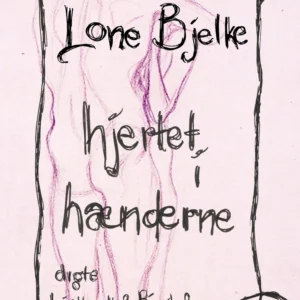 Lone Bjelke
hjertet
i
hænderne
digte